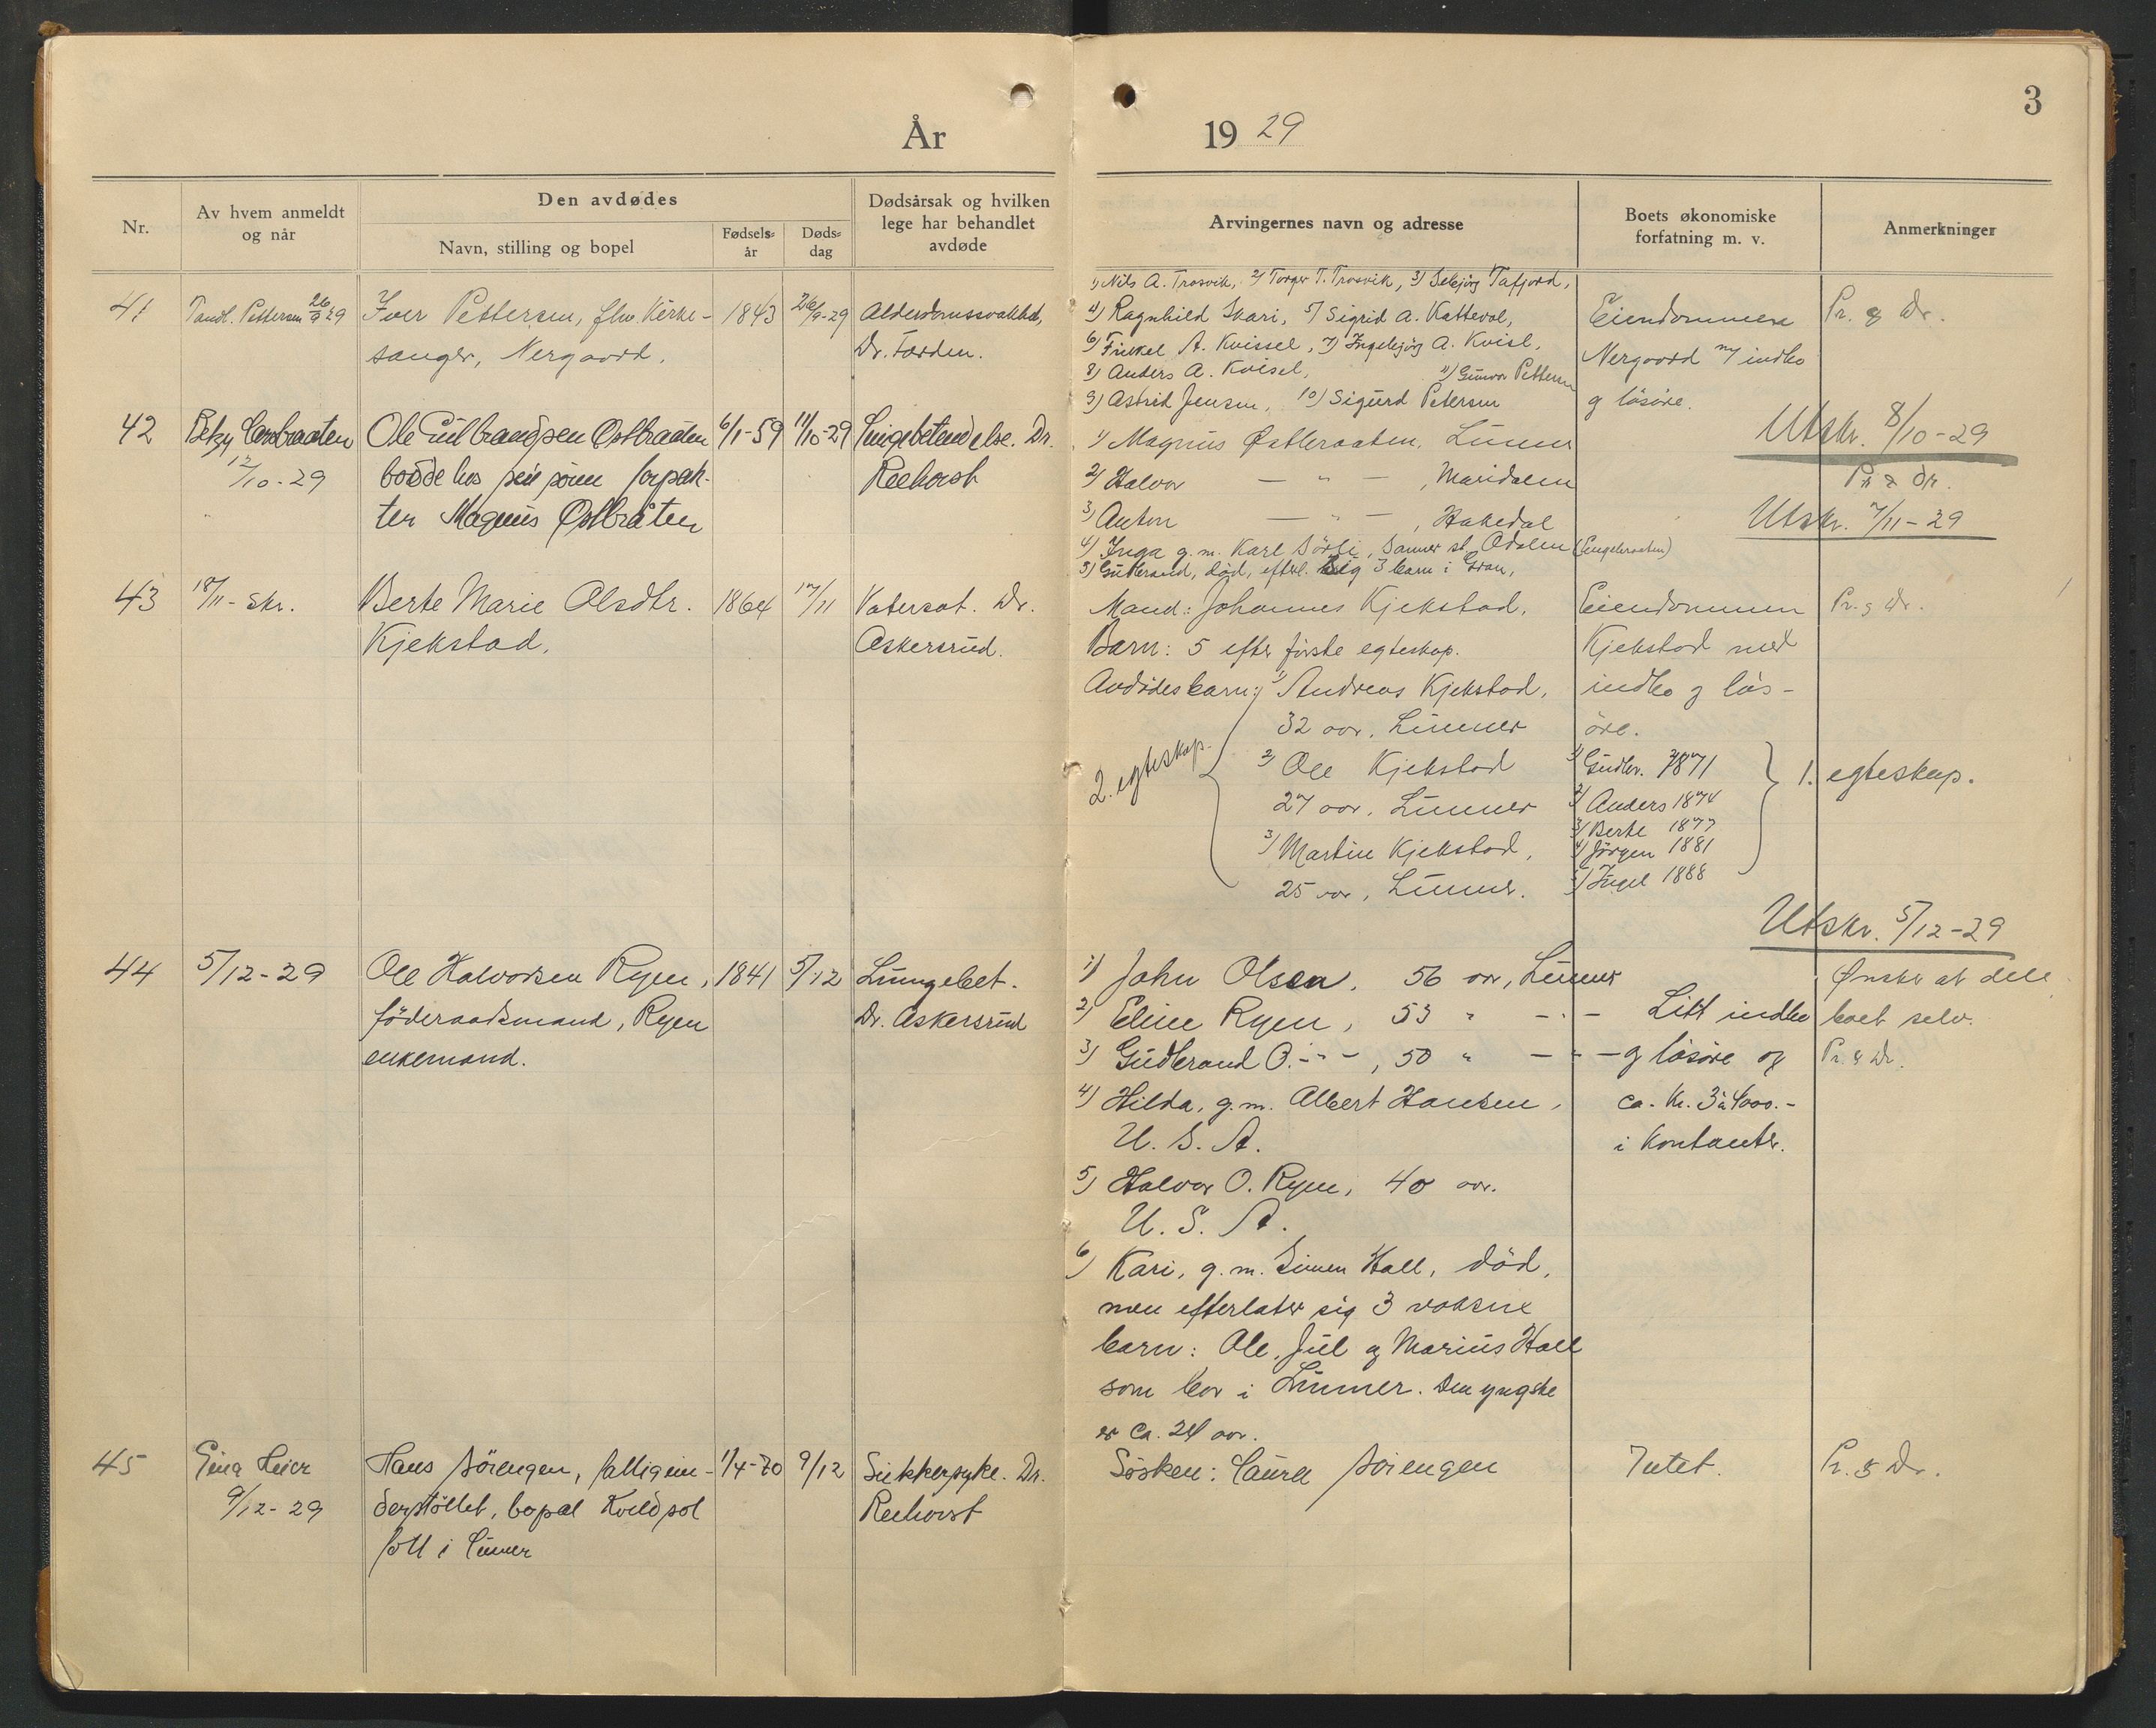 3
År 19 29
Nr.
Av hvem anmeldt
og når
Den avdødes
Navn, stilling og bopel
Fødsels=
år
Døds=
dag
Dødsårsak og hvilken
lege har behandlet
avdøde
Arvingernes navn og adresse
Boets økonomiske
forfatning m. v.
Anmerkninger
41
Tandl. Pettersen 26/9 29
Iver Pettersen, fhv. Kirke-
sanger, Nergaard.
1843
26/9-29
Alderdomssvakhet,
Dr. Tarden.
1) Nils A. Trosvik, 2) Torger T. Trosvik, 3) Selsjörg Tafjord,
4) Ragnhild Skari, 5) Sigrid A. Katteval,
6) Finkel A. Kvissel, 7) Ingebjörg A. Kvisl,
8) Anders A. Kvisel, 11) Gunvor Pettersen
9) Astrid Jensen, 10) Sigurd Petersen
Eiendommen
Nergaard m/ indbo
og lösöre.
Pr. & Dr.
Utskr. 8/10-29
42
Betzy
12/10-29
Ole Gulbrandsen Østbraaten
bodde hos sin sönn forpak-
ter Magnus Østbråten
6/1-59
11/10-29
Lungebetendelse. Dr.
Reehorst
1) Magnus Østbraaten, Lunner
2) Halvor — " — , Maridalen
3) Anton — " — , Hakedal
4) Inga g.m. Karl Sörli, Sanner st. Odalen (Engebraaten)
5) Gudbrand, död, efterl. sig 3 barn i Gran,
Pr. & Dr.
Utskr. 7/11-29
43
18/11 - Skr.
Berte Marie Olsdtr.
Kjekstad.
1864
17/11
Vatersot. Dr.
Askersrud.
Mand: Johannes Kjekstad.
Barn: 5 efter første egteskap.
Avdödes barn: 1) Andreas Kjekstad,
32 aar, Lunner
2) Ole Kjekstad
27 aar, Lunner
3) Martin Kjekstad,
25 aar, Lunner.
2. egteskap.
Eiendommen
Kjekstad med
indbo og lös-
öre.
1) Gudbr. 1871
2) Anders 1874
3) Berte 1877
4) Jörgen 1881
5) Ingel 1888
1. egteskap.
Pr. & Dr.
Utskr. 5/12-29
44
5/12-29
Ole Halvorsen Ryen,
föderaadsmand, Ryen
enkemand.
1841
5/12
Lungebet.
Dr. Askersrud
1) John Olsen, 56 aar, Lunner
2) Eline Ryen, 53 " - " -
3) Gudbrand O. - " - , 50 " - " -
4) Hilda, g.m. Albert Hansen,
U. S. A.
5) Halvor O. Ryen, 40 aar.
U. S. A.
6) Kari, g.m. Simen Hall, död,
men efterlater sig 3 voksne
barn: Ole, Jul og Marius Hall
som bor i Lunner. Den yngste
er ca. 24 aar.
Litt indbo
og lösöre og
ca. Kr. 3 à 4000.-
i kontanter.
Ønsker at dele
boet selv.
Pr. & Dr.
45
Gina Heier
9/12-29
Hans Sörengen, fattigun-
derstöttet, bopæl Kveldsol
fatt i Lunner
1/4-70
9/12
Sukkersyke. Dr.
Reehorst
Søsken: Laura Sörengen
Intet.
Pr. & Dr.